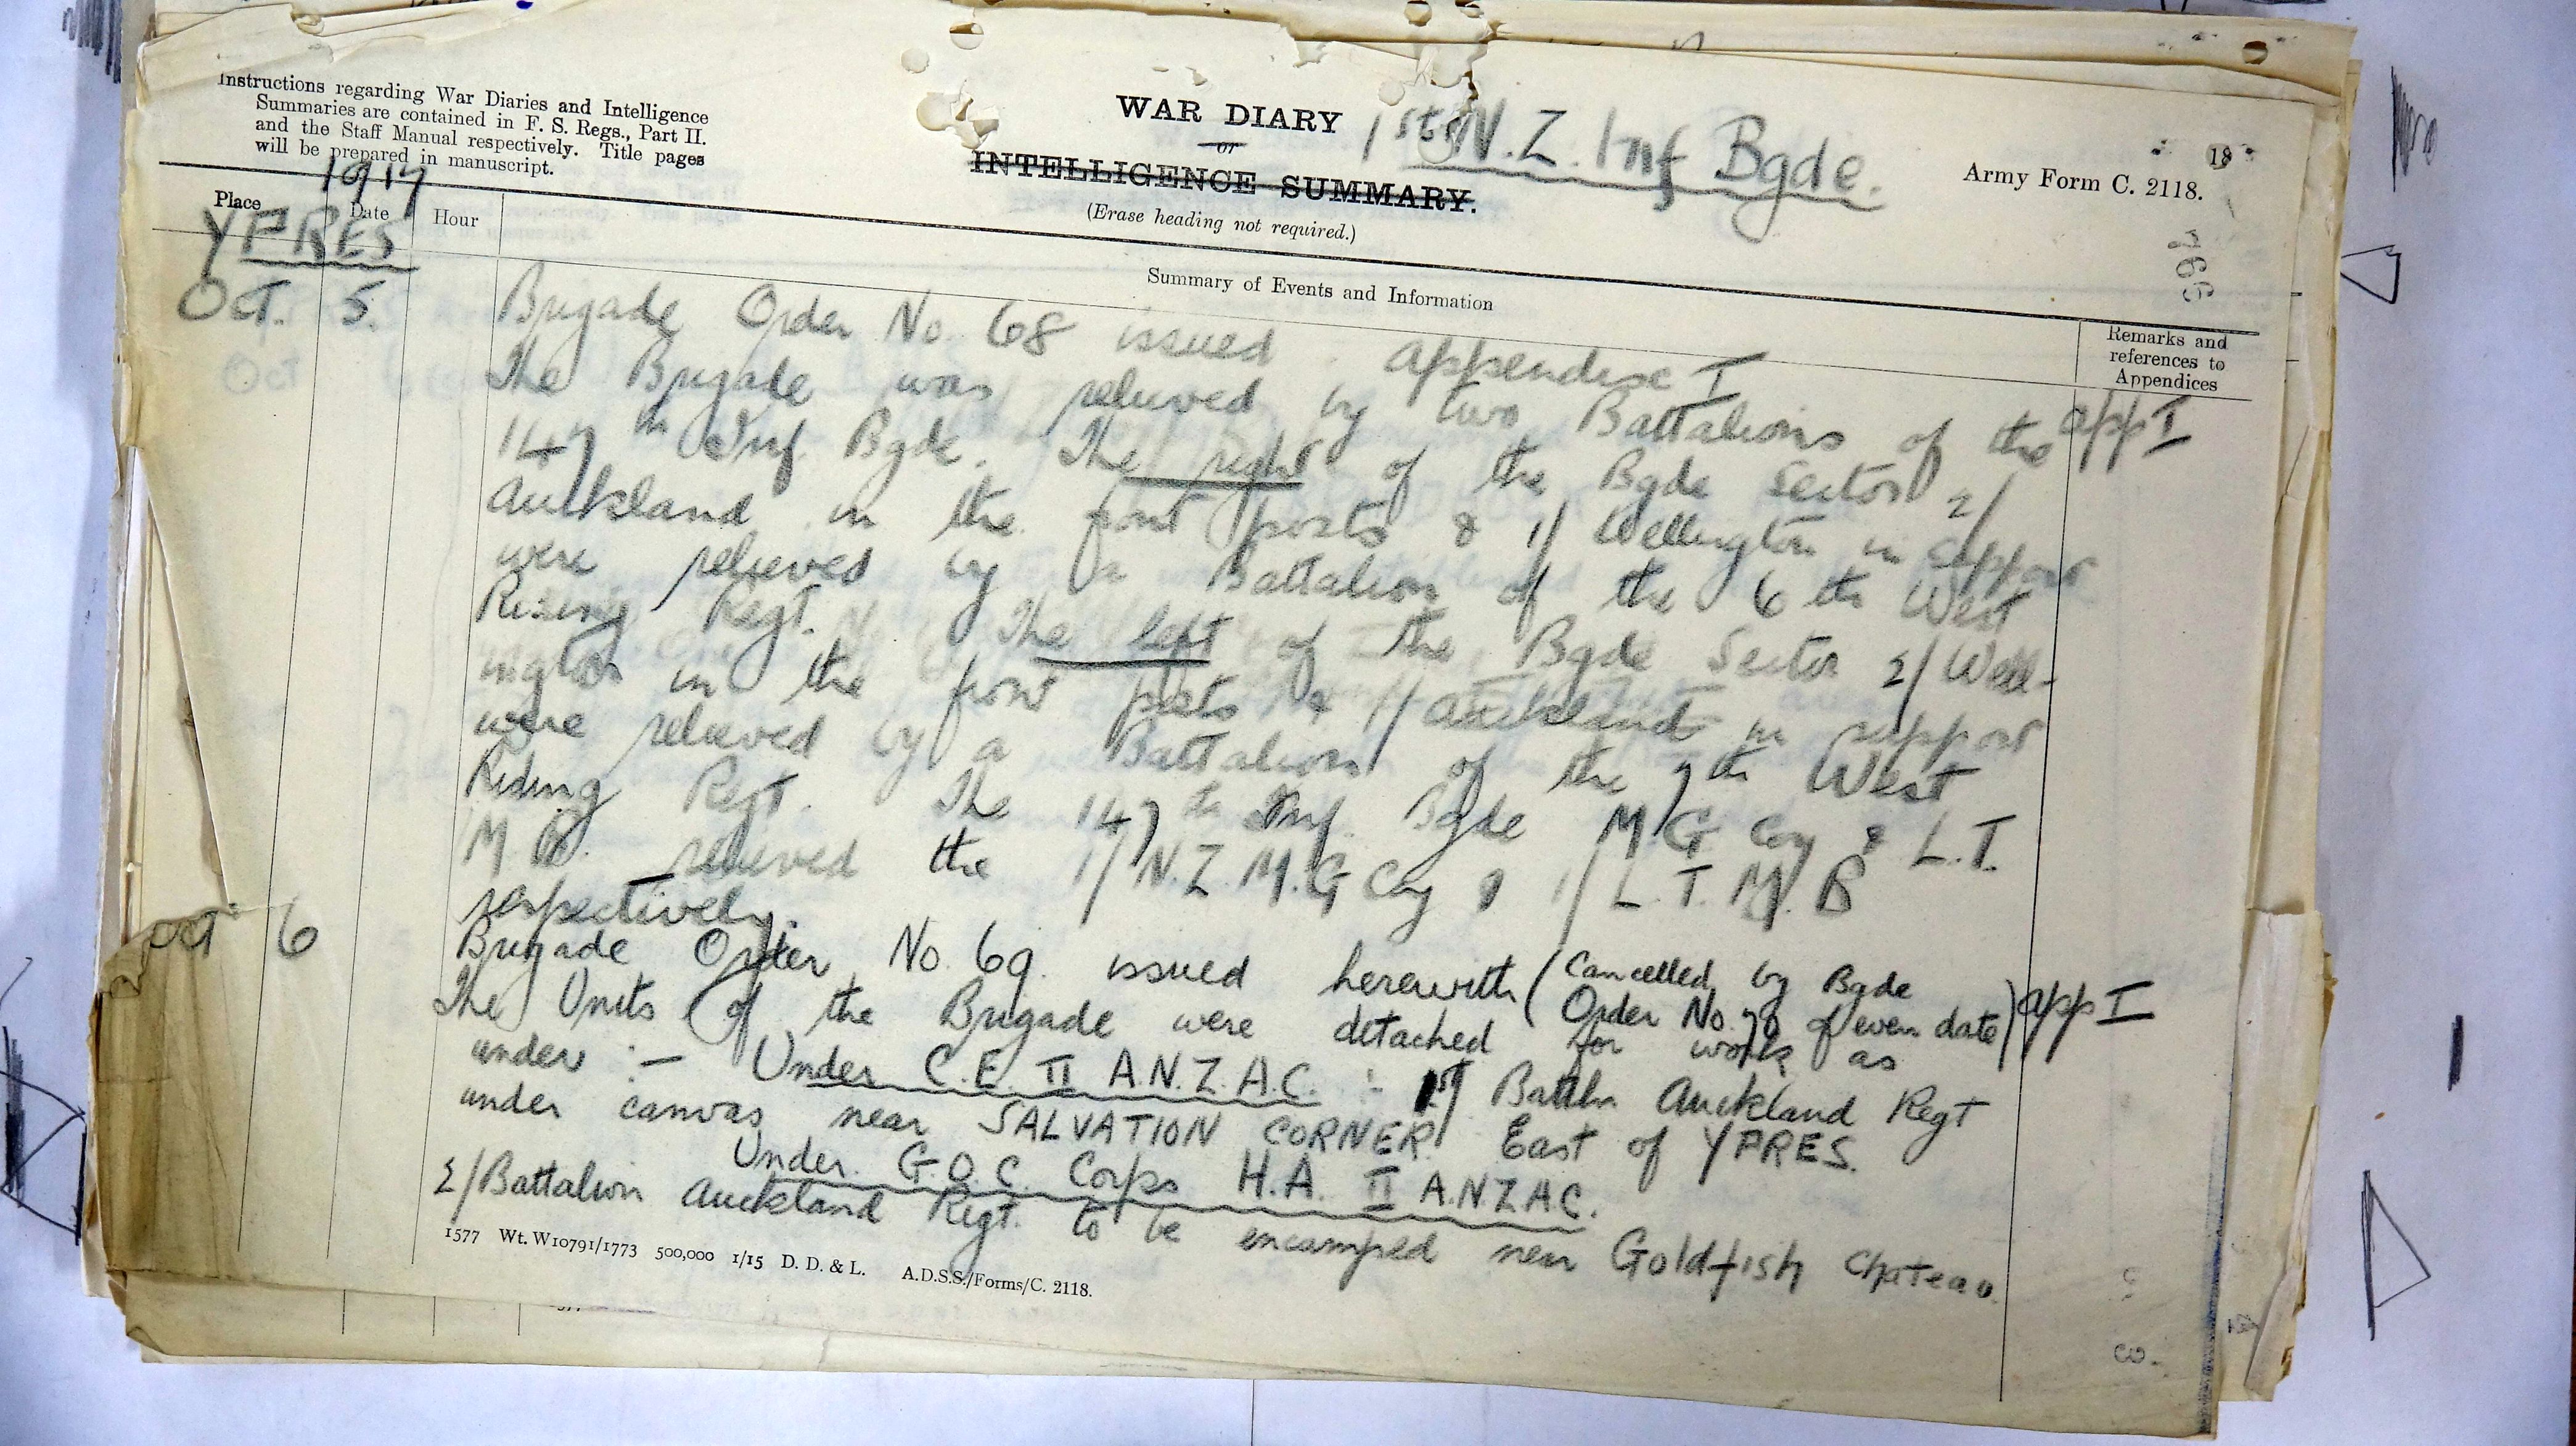 Instructions regarding War Diaries and Intelligence
Summaries are contained in F. S. Regs., Part II.
and the Staff Manual respectively. Title pages
will be prepared in manuscript.
WAR DIARY
or
INTELLIGENCE SUMMARY.
(Erase heading not required.)
1st N.Z. Inf Bgde.
Army Form C. 2118.
18
1917
Place
Date
Hour
YPRES
Summary of Events and Information
Remarks and
references to
Appendices
Oct. 5. Brigade Order No. 68 issued. appendix I
The Brigade was relieved by two Battalions of the app I
147th Inf. Bgde. The right of the Bgde Sector 2/
Auckland in the front posts & 1/ Wellington in support
were relieved by a Battalion of the 6th West
Riding Regt. The left of the Bgde Sector 2/ Well-
ington in the front posts & 1/ Auckland in support
were relieved by a Battalion of the 7th West
Riding Regt. The 147th Inf. Bgde M G Coy & L.T.
M B. relieved the 1/ N.Z. M.G Coy & 1/ L.T.M.B
respectively.
Oct 6 Brigade Order No. 69. issued herewith (Cancelled by Bgde
Order No. 70 of even date) app I
The Units of the Brigade were detached for work as
under :- Under C.E. II A.N.Z.A.C. :- 1st Battln Auckland Regt
under canvas near SALVATION CORNER East of YPRES.
Under G.O.C. Corps H.A. II A.N.Z.A.C.
2/Battalion Auckland Regt. to be encamped near Goldfish Chateau.
1577 Wt. W10791/1773 500,000 1/15 D. D. & L. A.D.S.S./Forms/C. 2118.